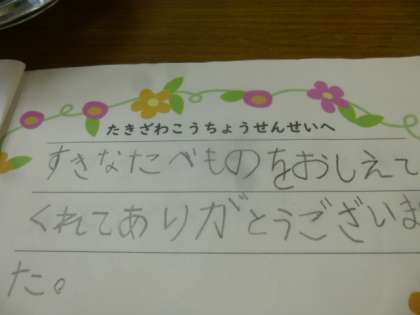 たきざわこうちょうせんせいへ
すきなたべものをおしえて
くれてありがとうございま
た。